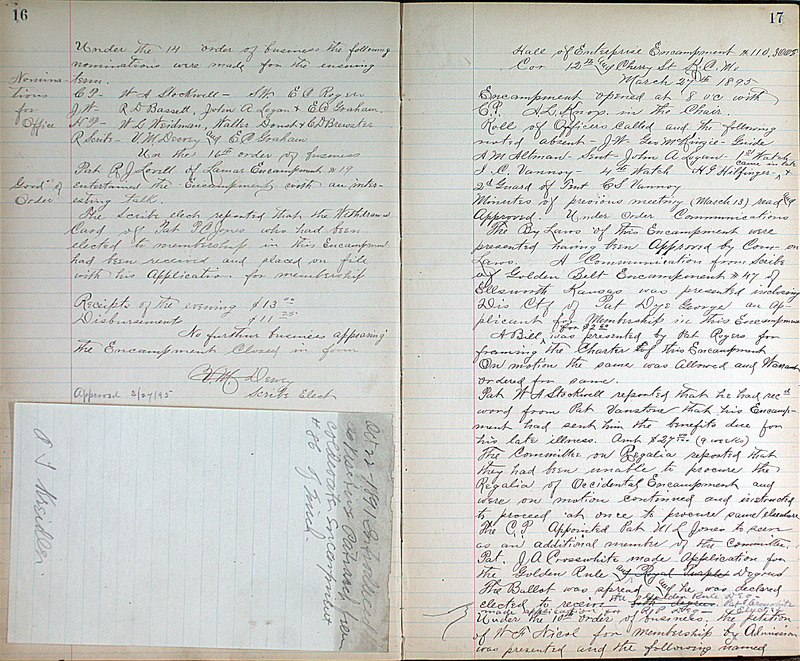 16
Under the 14 order of business the following
nominations were made for the ensuing
term.
Nomina-
tions
for
Office
C.P- W A Stockwell- S.W. E C Rogers
J.W. R D Bassell, John A Logan & E C Graham.
H P- W C Weidman, Walter Donst & C D Brewster
R Scribe- V. M. Dewry & E C Graham
Un the 16th order of business
Good of
Order
Pat R J Lovell of Lamar Encampment #19
entertained the Encampment with an inter-
esting talk.
The Scribe elect reported that the Withdrawal
Card of Pat P. C. Jones who had been
elected to membership in this Encampment
had been received and placed on file
with his Application for membership
Receipts of the evening $13 00
Disbursements $11 25
No further business appearing
the Encampment closed in form
V M Dewry
Scribe Elect
Approved 3/27/95
17
Hall of Enterprise Encampment #110, 3005
Cor 12th & Cherry St K. C. Mo.
March 27th 1895
Encampment opened at 8 oc with
C. P. A L Knop in the Chair.
Roll of Officers Called and the following
noted absent- J. W. Geo McKingie- Guide
A M Altman- Sent John A Logan- 1st Watch
came in late
J. C. Vannoy- 4th Watch H P Hilfinger- &
2d Guard of Tent C S Vannoy
Minutes of previous meeting (March 13) read &
Approved. Under Order Communications
The By Laws of this Encampment were
presented having been Approved by Com on
Laws. A Communication from Scribe
of Golden Belt Encampment #47 of
Ellsworth Kansas was presented inclosing
Dis Ctf of Pat Dye George an Ap-
plicant for Membership in this Encampment
for $2 50
A Bill was presented by Pat Rogers for
framing the Charter of this Encampment
On motion the same was Allowed and Warrant
ordered for same.
Pat W A Stockwell reported that he had recd
word from Pat Vanstone that his Encamp-
ment had sent him the benefits due for
his late illness. Amt $27 00 (9 weeks)
The Committee on Regalia reported that
they had been unable to procure the
Regalia of Occidental Encampment and
were on motion continued and instructed
to proceed at once to procure same elsewhere
The C. P. Appointed Pat W L Jones to serve
as an additional member of the Committee
Pat. J. A. Crosswhite made Application for
the Golden Rule & Royal Purple Degrees
The Ballot was spread and he was declared
the Golden Rule Deg-
elected to receive both degrees. Pat Crosswhite
made application for
Under the 10th order of business. the petition
of W F Nicol for membership by Admission
was presented and the following named